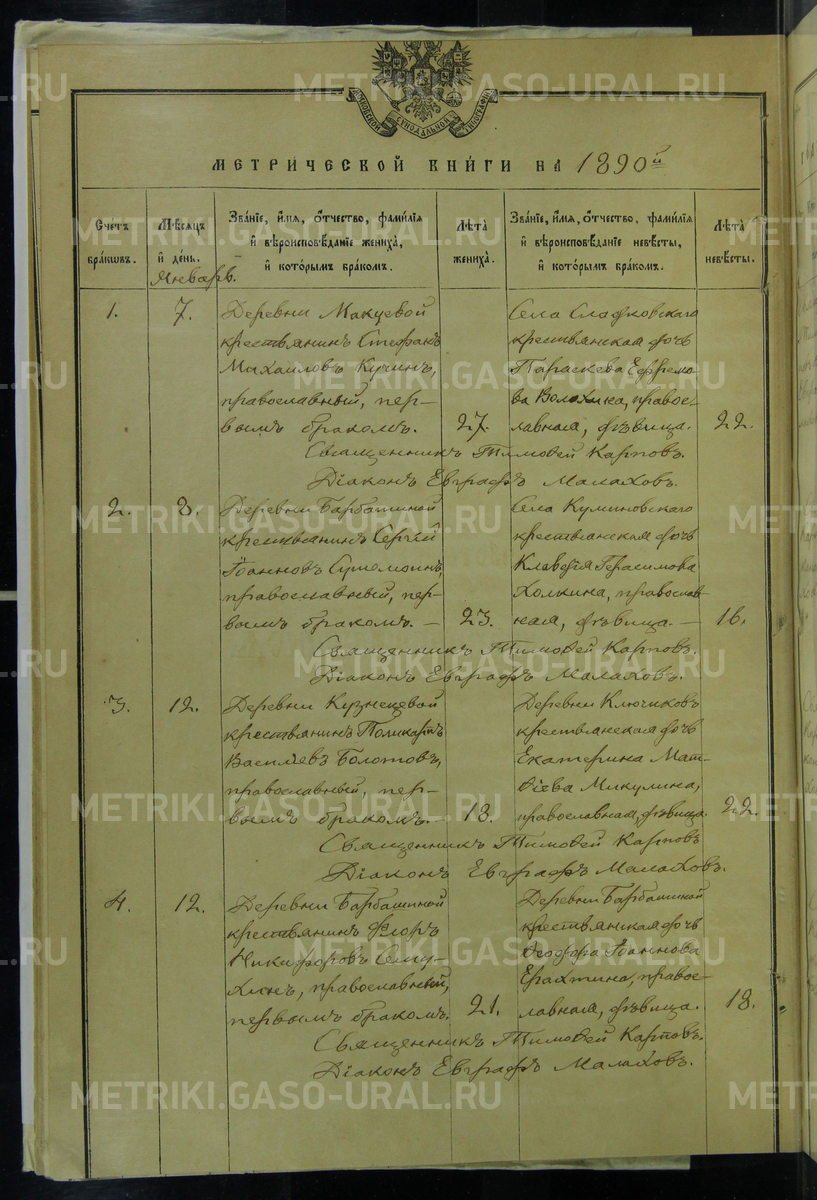 МОСКОВСКОЙ СѴНОДАЛЬНОЙ ТИПОГРАФІИ
МЕТРИЧЕСКОЙ КНИГИ НА 1890й
Счетъ браковъ.
Мѣсяцъ и день.
Званіе, имя, отчество, фамилія и вѣроисповѣданіе жениха, и которымъ бракомъ.
Лѣта жениха.
Званіе, имя, отчество, фамилія и вѣроисповѣданіе невѣсты, и которымъ бракомъ.
Лѣта невѣсты.
Январь.
1.
7.
Деревни Макуевой
крестьянинъ Стефанъ
Михаиловъ Кучинъ,
православный, пер-
вымъ бракомъ.
27.
Села Сладковскаго
крестьянская дочь
Параскева Ефремо-
ва Волохина, правос-
лавная, дѣвица.
22.
Священникъ Тимофей Карповъ.
Діаконъ Евграфъ Малаховъ.
2.
8.
Деревни Барбашиной
крестьянинъ Сергій
Іоанновъ
православный, пер-
вымъ бракомъ. —
23.
Села Куминовскаго
крестьянская дочь
Клавдія Герасимова
Холкина, православ-
ная, дѣвица. —
16.
Священникъ Тимофей Карповъ.
Діаконъ Евграфъ Малаховъ.
3.
12.
Деревни Кузнецовой
крестьянинъ Поликарпъ
Васильевъ Болотовъ,
православный, пер-
вымъ бракомъ. —
18.
Деревни Ключиковъ
крестьянская дочь
Екатерина Мат-
ѳіева Микулина,
православная, дѣвица.
22.
Священникъ Тимофей Карповъ
Діаконъ Евграфъ Малаховъ.
4.
12.
Деревни Барбашиной
крестьянинъ Флоръ
Никифоровъ Сему-
хинъ, православный,
первымъ бракомъ.
21.
Деревни Барбашиной
крестьянская дочь
Ѳеодора Іоаннова
Ерахтина, правос-
лавная, дѣвица.
18.
Священникъ Тимофей Карповъ.
Діаконъ Евграфъ Малаховъ.
METRIKI.GASO-URAL.RU